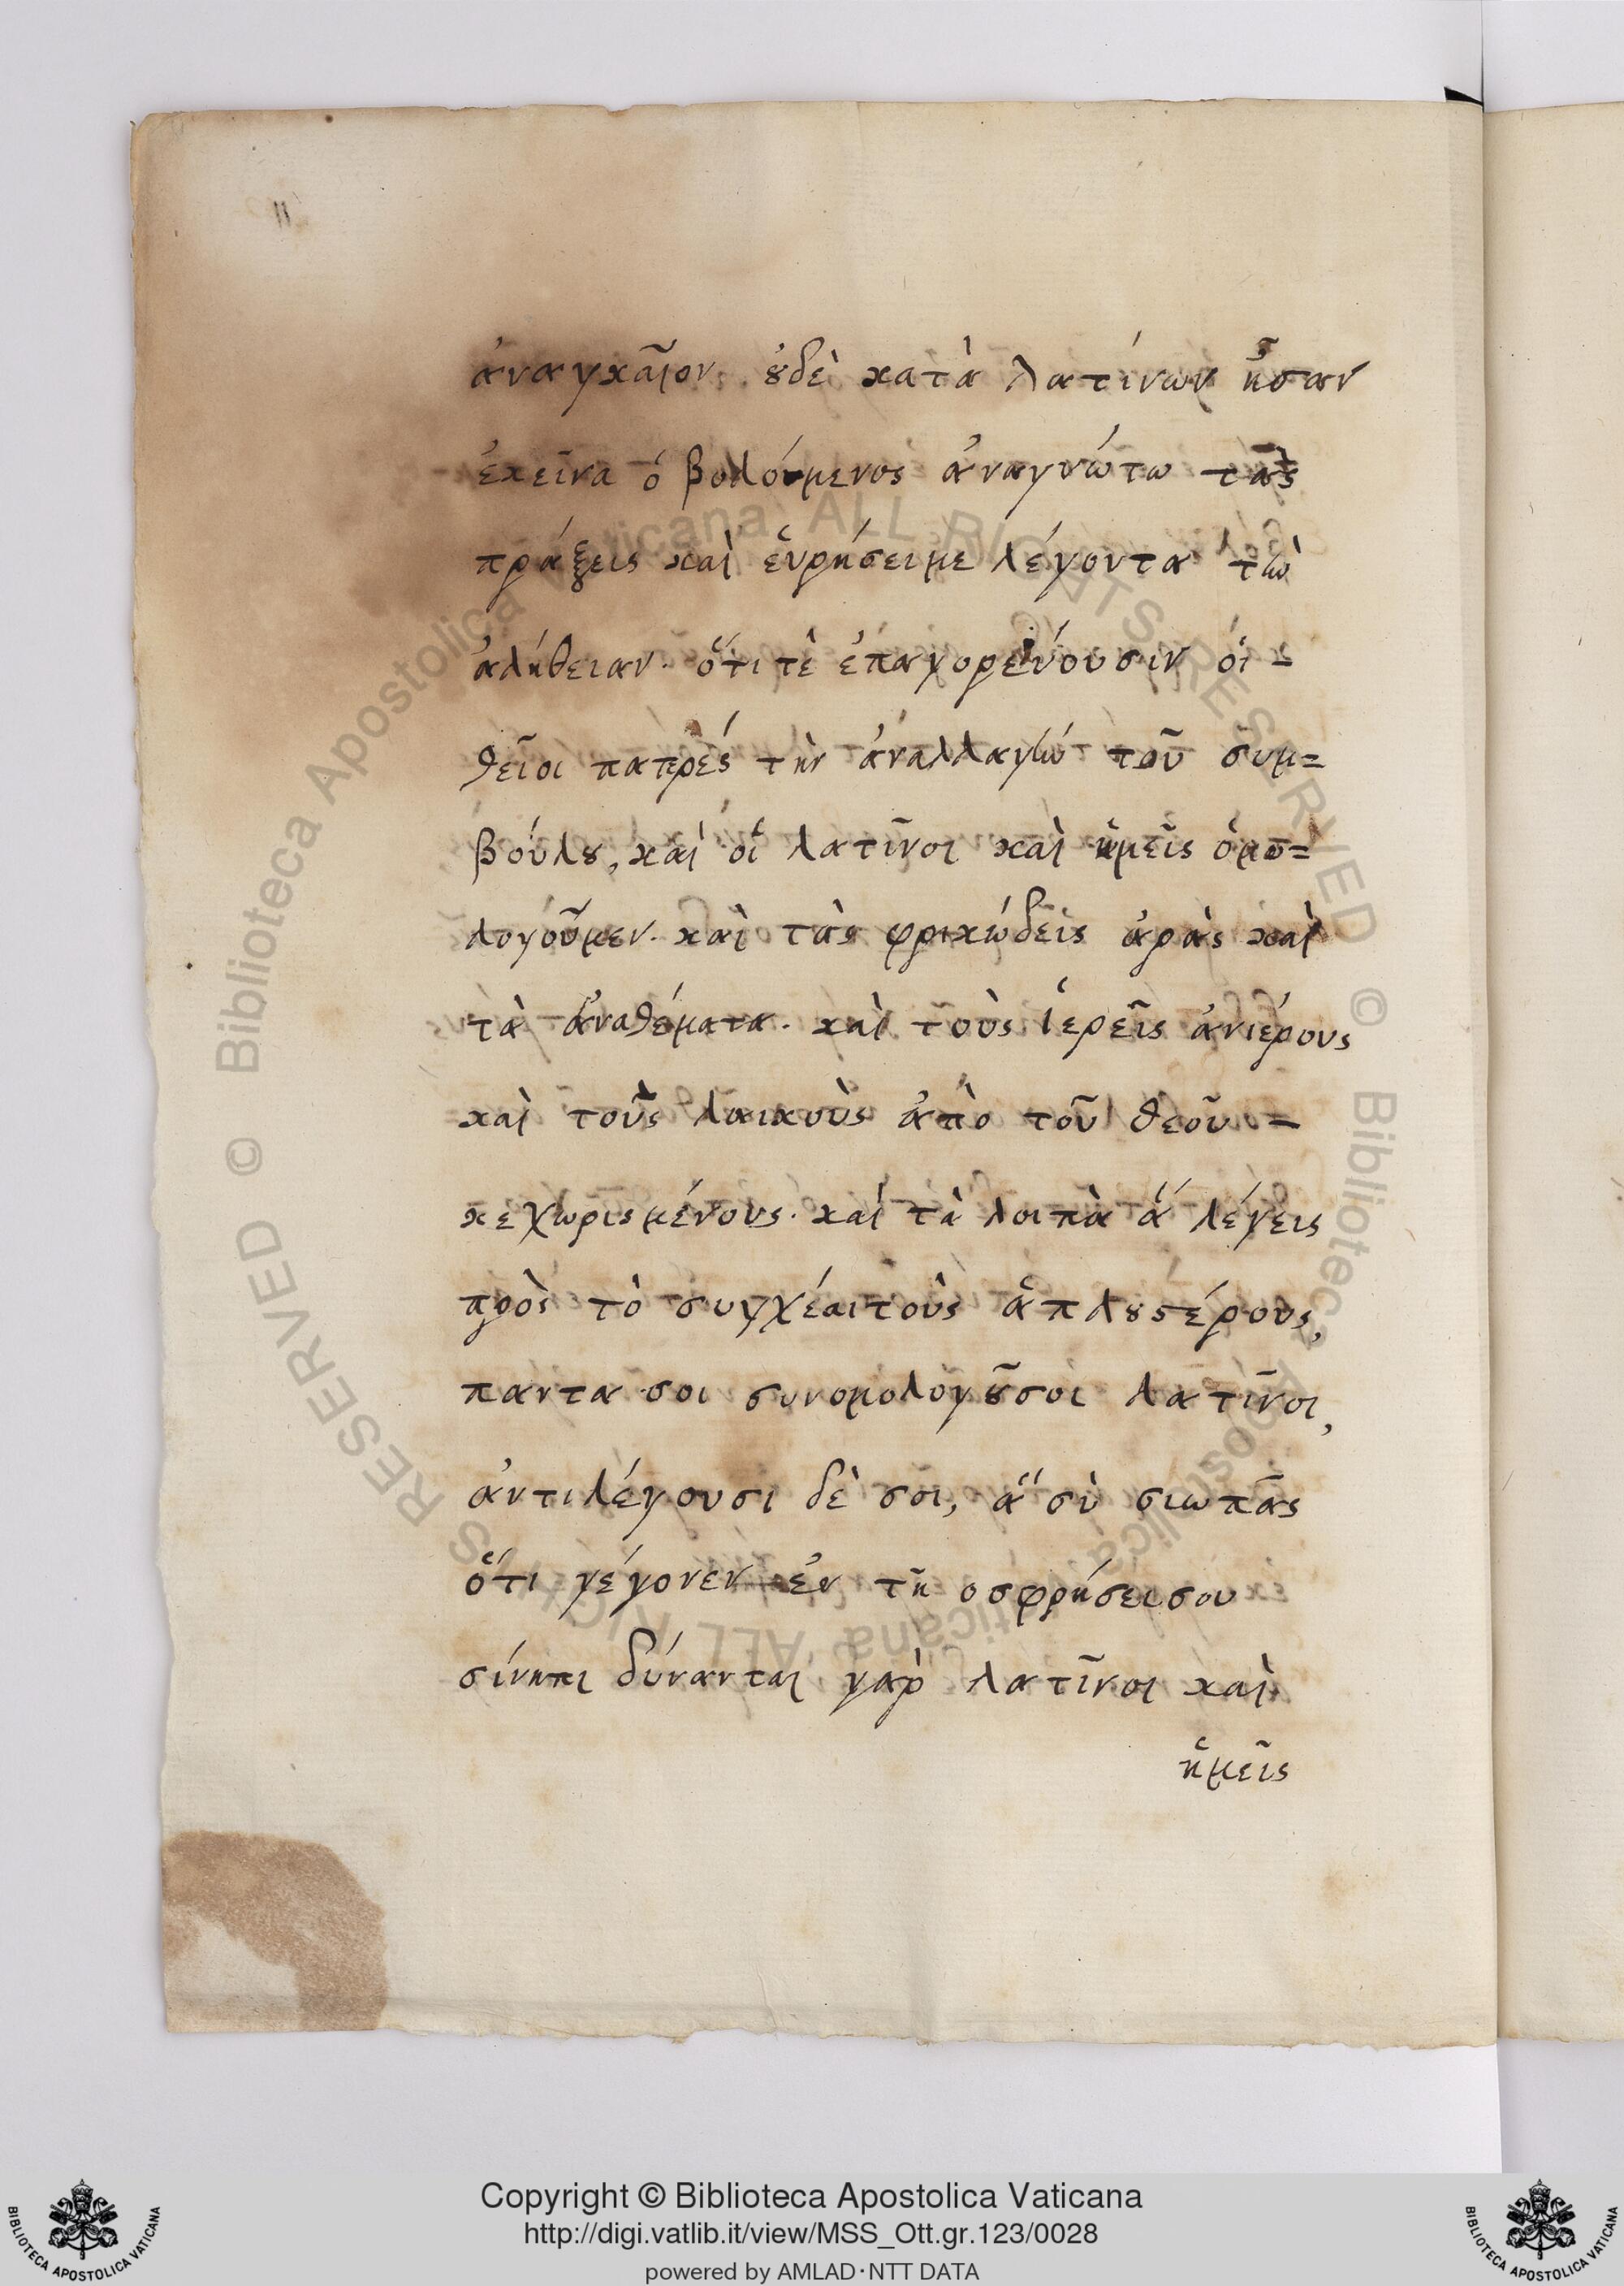 11
ἀναγκαῖον. ȣ̓δὲ κατὰ λατίνων ἦσαν
ἐκεῖνα ὁ βολόυμενος ἀναγνώτω τὰς
πράξεις καὶ ἑυρήσειμε λέγοντα τὴν
ἀλήθειαν. ὅτι τὲ ἐπαγορεύουσιν οἱ -
θεῖοι πατρές τὴν ἀναλλαγὴν τοῦ συμ=
βούλȣ, καὶ οἱ λατῖνοι καὶ ἡμεῖς ὁμο=
λογοῦμεν. καὶ τὰς φρικώδεις ἀρὰς καὶ
τὰ ἀναθέματα. καὶ τοὺς ἱερεῖς ἀνιέρους
καὶ τοὺς λαικοὺς ἀπὸ τοῦ θεοῦ =
κεχωρισμένους. καὶ τὰ λοιπὰ ἅ λέγεις
πρὸς τὸ συγχέαιτοὺς ἁπλȣϛέρους,
παντα σοι συνομολογȣ͂σοι λατῖνοι,
ἀντιλέγουσι δὲ σοι, ἅ σὺ σιωπᾶς
ὅτι γέγονεν ἐν τῆ οσφρήσεισου
σίνηπι δύνανται γαρ λατῖνοι καὶ
ἡμεῖς
© Biblioteca Apostolica Vaticana ALL RIGHTS RESERVED
© Biblioteca Apostolica Vaticana ALL RIGHTS RESERVED
Copyright © Biblioteca Apostolica Vaticana
http://digi.vatlib.it/view/MSS_Ott.gr.123/0028
powered by AMLAD·NTT DATA
BIBLIOTECA APOSTOLICA VATICANA
BIBLIOTECA APOSTOLICA VATICANA